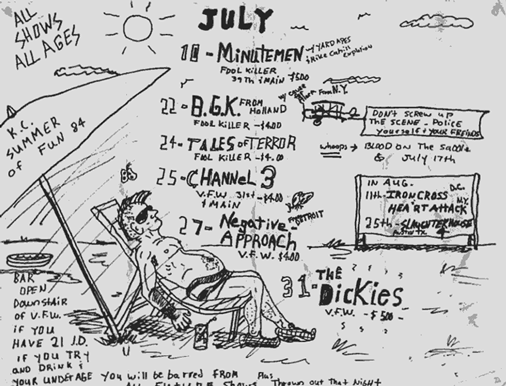 ALL
SHOWS
ALL AGES
JULY
10 - MINUTEMEN + YARD APES
FOOL KILLER
39TH & MAIN $5.00
22 - B.G.K. FROM HOLLAND
FOOL KILLER - $4.00
24 - TALES OF TERROR
FOOL KILLER - $4.00
25 - CHANNEL 3
V.F.W. 31st - $4.00
& MAIN
27 - Negative
APPROACH
FROM DETROIT
V.F.W. $4.00
31 - THE
DICKIES
V.F.W. - $5.00 -
K.C.
SUMMER
OF FUN 84
DON'T SCREW UP
THE SCENE - POLICE
yourself & YOUR FRIENDS
whoops → BLOOD ON THE SADDLE
JULY 17th
IN AUG.
11th - IRON CROSS D.C.
HEART ATTACK N.Y.
25th - SLAUGHTERHOUSE
BAR
OPEN
DOWNSTAIR
OF V.F.W.
if you
HAVE 21 I.D.
IF YOU TRY
AND DRINK &
YOUR UNDERAGE you will be barred FROM Plus
ALL FUTURE SHOWS Thrown Out That NIGHT